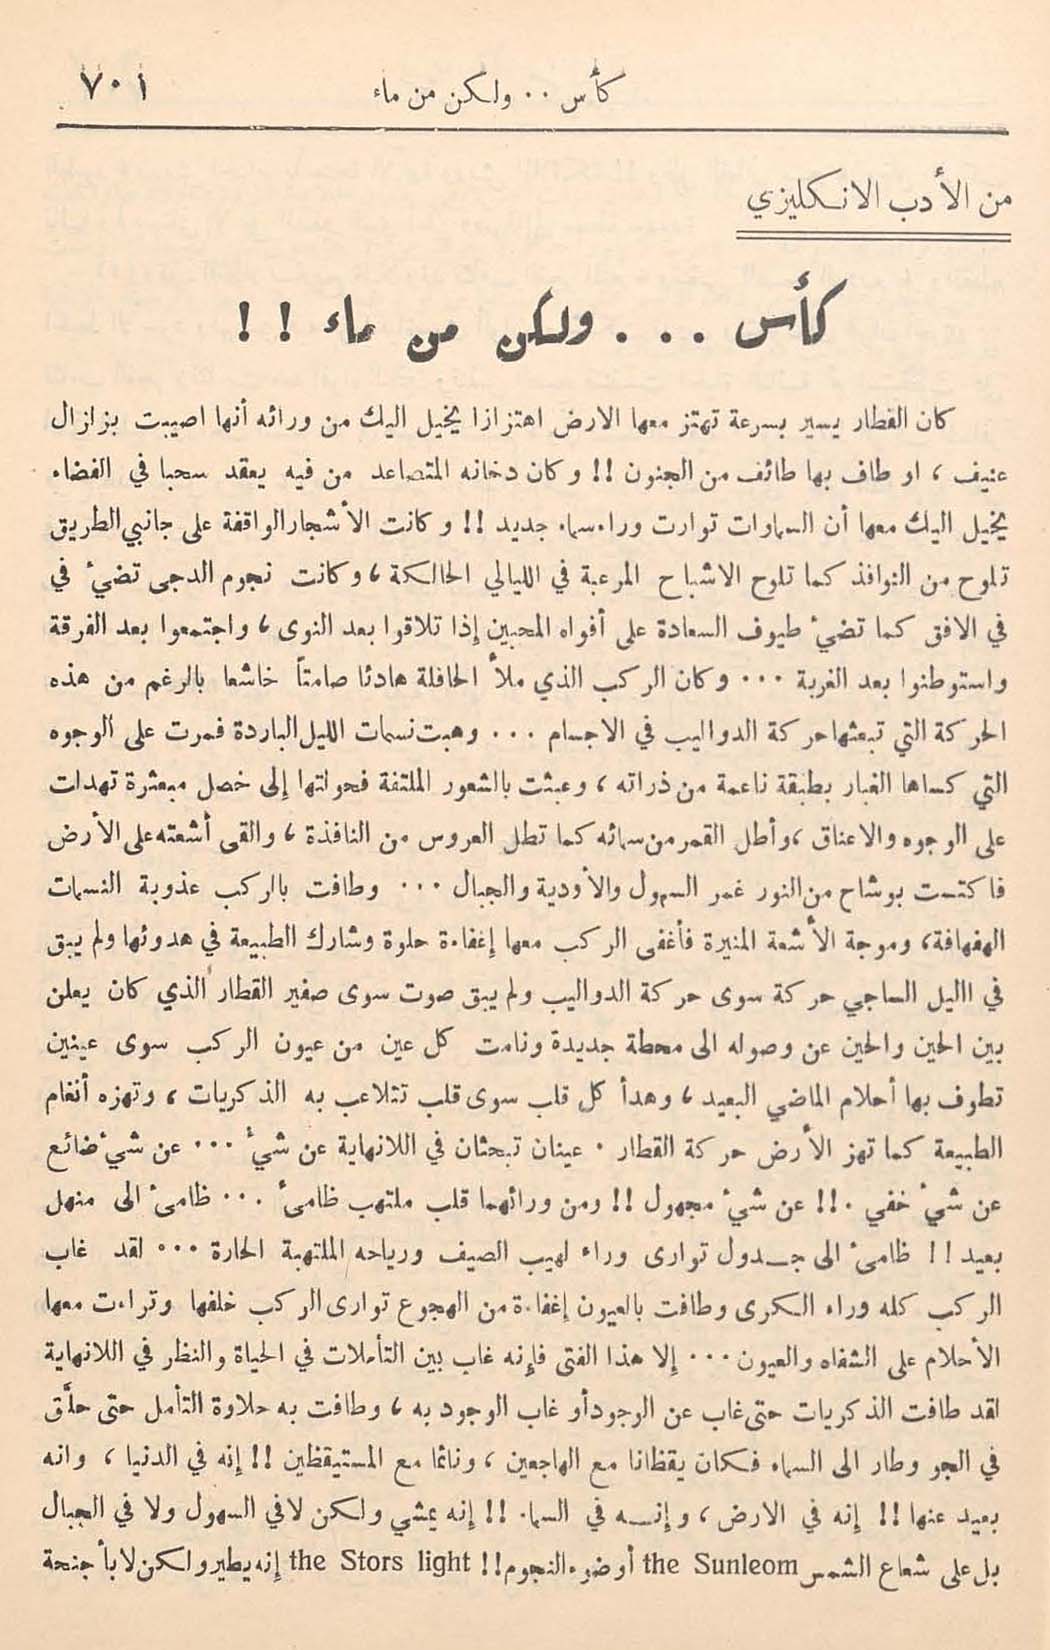 كأس . . ولكن من ماء
٧٠١
من الأدب الانكليزي
كأس . . . ولكن من ماء ! !
كان القطار يسير بسرعة تهتز معها الارض اهتزازا يخيل اليك من ورائه أنها اصيبت بزلزال
عنيف ، او طاف بها طائف من الجنون !! وكان دخانه المتصاعد من فيه يعقد سحبا في الفضاء
يخيل اليك معها أن السماوات توارت وراء سماء جديد !! وكانت الأشجار الواقفة على جانبي الطريق
تلوح من النوافذ كما تلوح الاشباح المرعبة في الليالي الحالكة ، وكانت نجوم الدجى تضيء في
في الافق كما تضيء طيوف السعادة على أفواه المحبين إذا تلاقوا بعد النوى ، واجتمعوا بعد الفرقة
واستوطنوا بعد الغربة . . . وكان الركب الذي ملأ الحافلة هادئا صامتاً خاشعا بالرغم من هذه
الحركة التي تبعثها حركة الدواليب في الاجسام . . . وهبت نسمات الليل الباردة فمرت على الوجوه
التي كساها الغبار بطبقة ناعمة من ذراته ، وعبثت بالشعور الملتفة فحولتها إلى خصل مبعثرة تهدات
على الوجوه والاعناق ، وأطل القمر من سمائه كما تطل العروس من النافذة ، والقى أشعته على الأرض
فاكتست بوشاح من النور غمر السهول والأودية والجبال . . . وطافت بالركب عذوبة النسمات
الهفهافة ، وموجة الأشعة المنيرة فأغفى الركب معها إغفاءة حلوة وشارك الطبيعة في هدوئها ولم يبق
في الليل الساجي حركة سوى حركة الدواليب ولم يبق صوت سوى صفير القطار الذي كان يعلن
بين الحين والحين عن وصوله الى محطة جديدة ونامت كل عين من عيون الركب سوى عينين
تطوف بها أحلام الماضي البعيد ، وهدأ كل قلب سوى قلب تتلاعب به الذكريات ، وتهزه أنغام
الطبيعة كما تهز الأرض حركة القطار . عينان تبحثان في اللانهاية عن شيء . . . عن شيء ضائع
عن شيء خفي . !! عن شيء مجهول !! ومن ورائهما قلب ملتهب ظامىء . . . ظامىء الى منهل
بعيد !! ظامىء الى جـــدول توارى وراء لهيب الصيف ورياحه الملتهبة الحارة . . . لقد غاب
الركب كله وراء الكرى وطافت بالعيون إغفاءة من الهجوع توارى الركب خلفها وتراءت معها
الأحلام على الشفاه والعيون . . . إلا هذا الفتى فإنه غاب بين التأملات في الحياة والنظر في اللانهاية
لقد طافت الذكريات حتى غاب عن الوجود أو غاب الوجود به ، وطافت به حلاوة التأمل حتى حلَّق
في الجو وطار الى السماء فكان يقظانا مع الهاجعين ، ونائما مع المستيقظين !! إنه في الدنيا ، وانه
بعيد عنها !! إنه في الارض ، وإنـــه في السماء !! إنه يمشي ولكن لا في السهول ولا في الجبال
بل على شعاع الشمس the Sunleom أو ضوء النجوم !! the Stors light إنه يطير ولكن لا بأجنحة